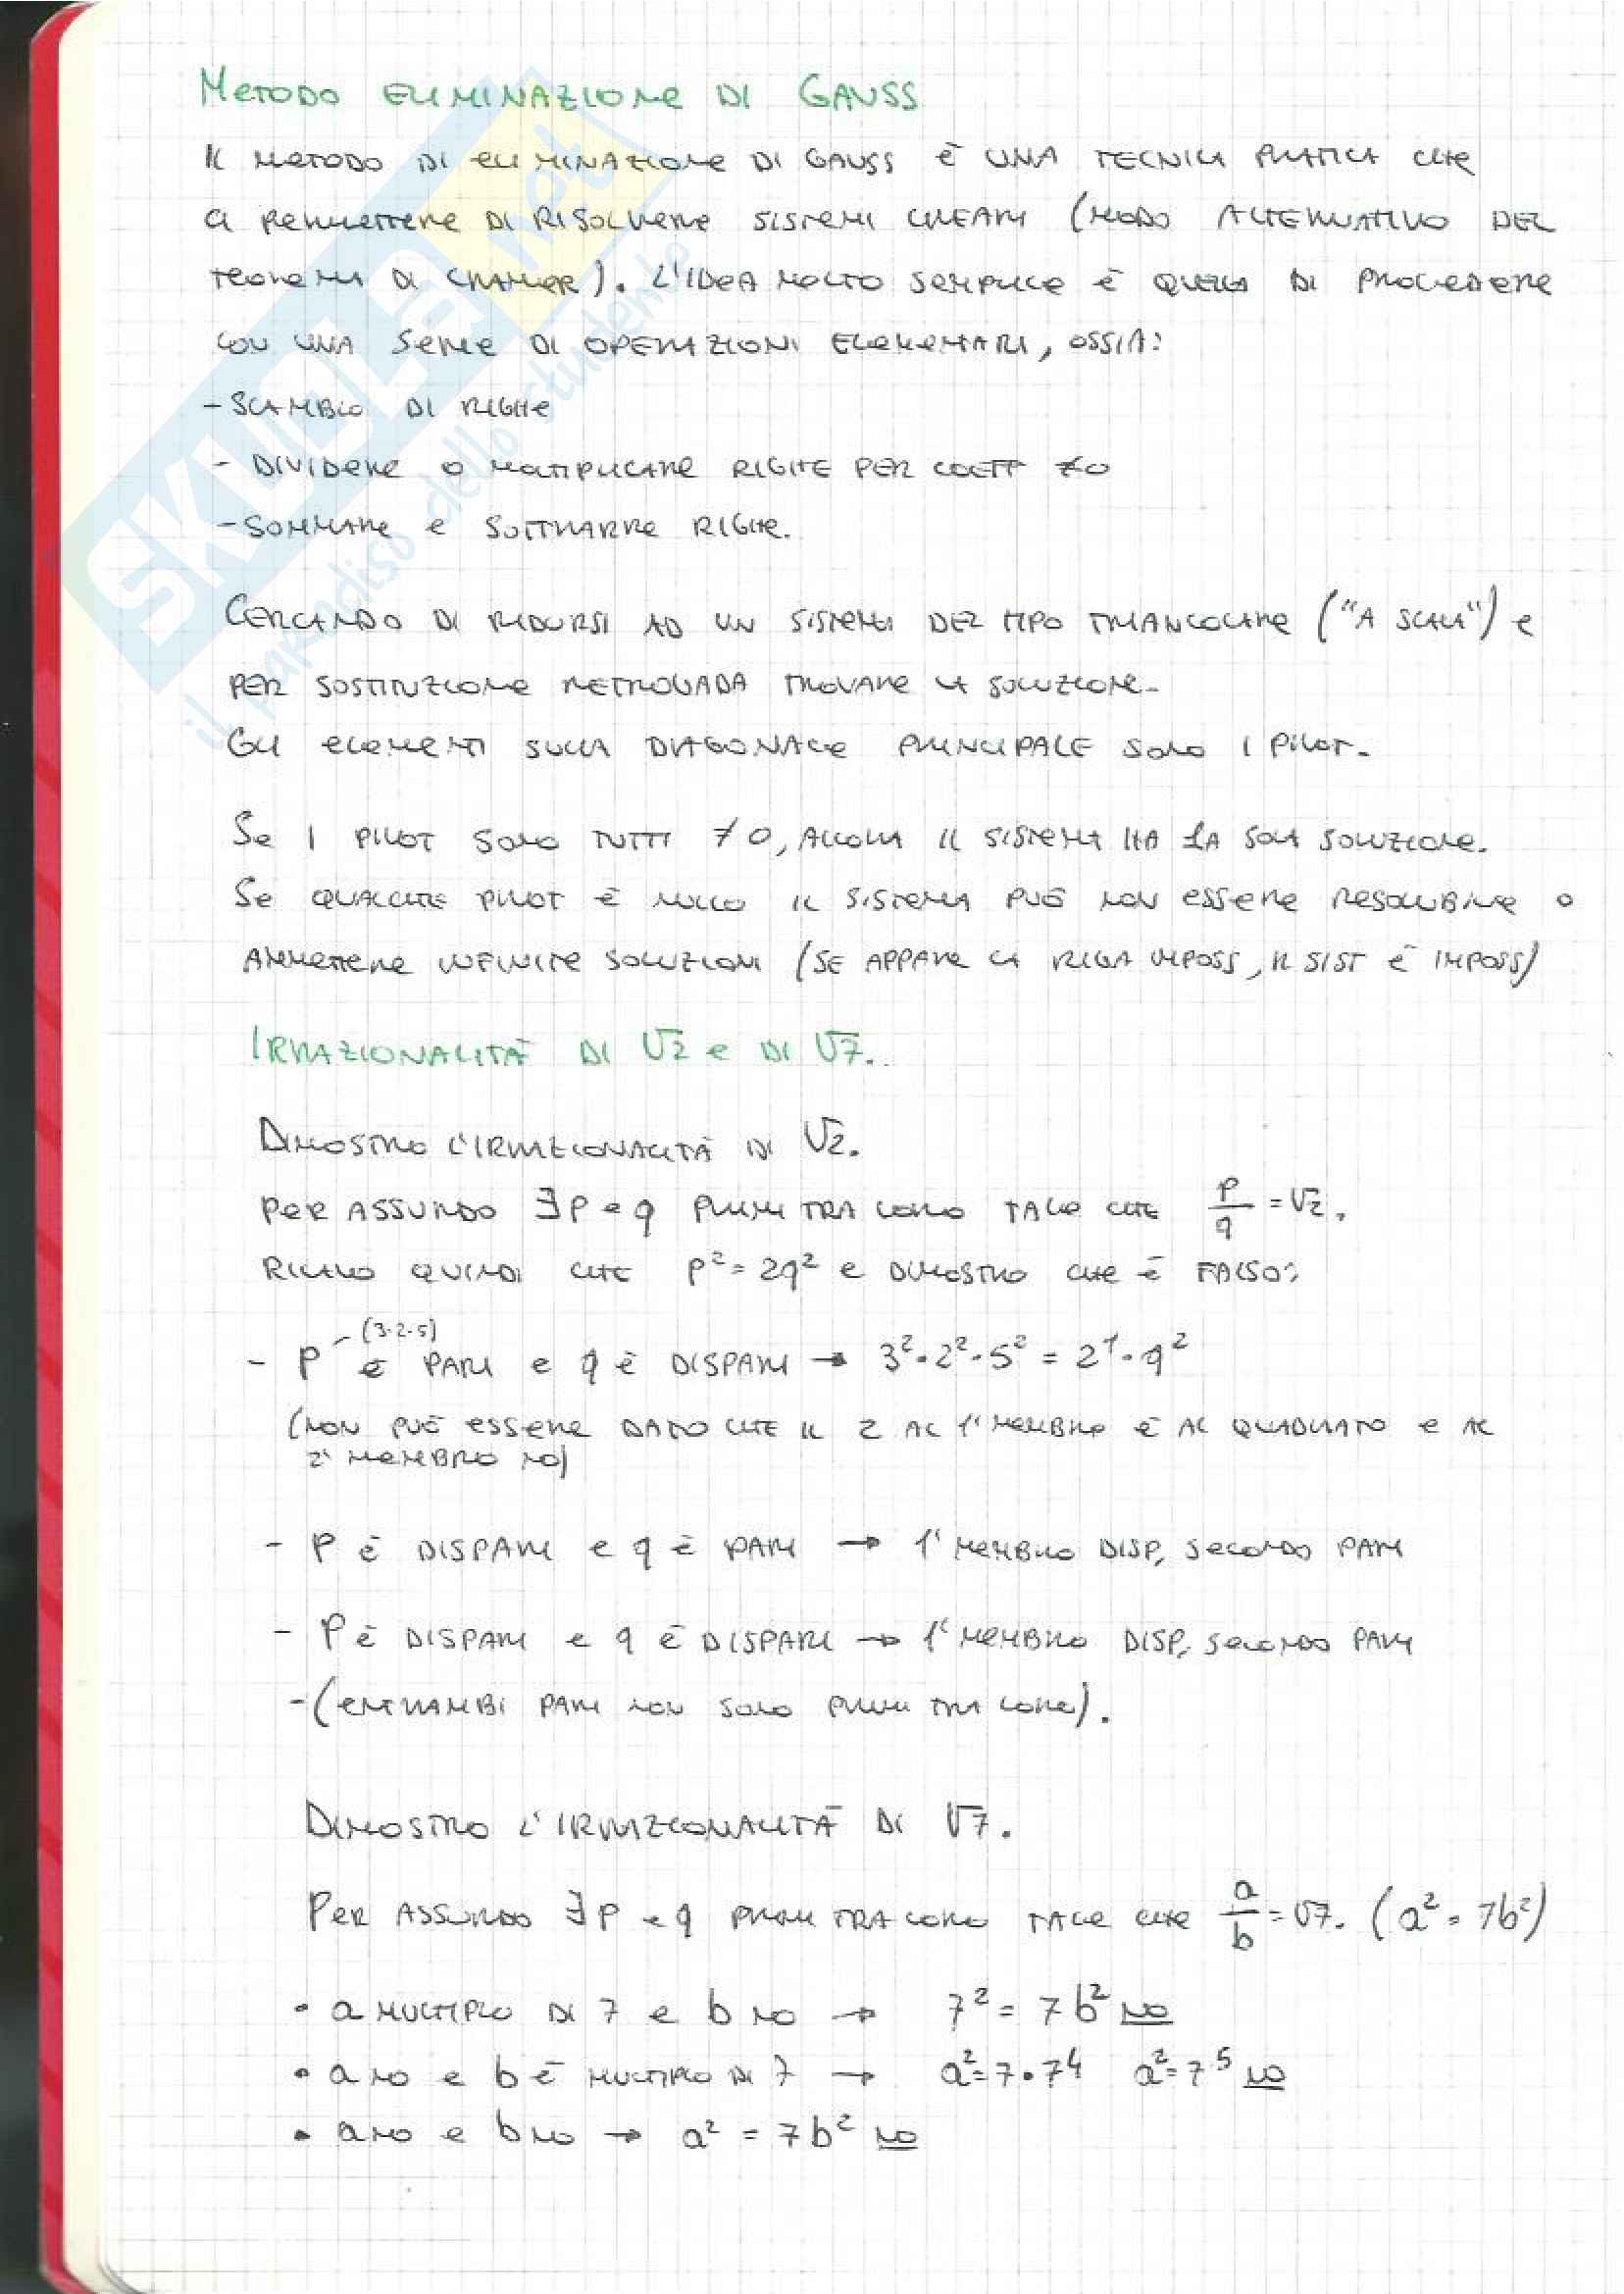 METODO ELIMINAZIONE DI GAUSS
IL METODO DI ELIMINAZIONE DI GAUSS È UNA TECNICA PRATICA CHE
CI PERMETTERE DI RISOLVERE SISTEMI LINEARI (MODO ALTERNATIVO DEL
TEOREMA DI CRAMER). L'IDEA MOLTO SEMPLICE È QUELLA DI PROCEDERE
CON UNA SERIE DI OPERAZIONI ELEMENTARI, OSSIA:
- SCAMBIO DI RIGHE
- DIVIDERE O MOLTIPLICARE RIGHE PER COEFF ≠0
- SOMMARE E SOTTRARRE RIGHE.
CERCANDO DI RIDURSI AD UN SISTEMA DEL TIPO TRIANGOLARE ("A SCALA") E
PER SOSTITUZIONE RETROGADA TROVARE LA SOLUZIONE.
GLI ELEMENTI SULLA DIAGONALE PRINCIPALE SONO I PILOT.
SE I PILOT SONO TUTTI ≠0, ALLORA IL SISTEMA HA 1A SOLA SOLUZIONE.
SE QUALCHE PILOT È NULLO IL SISTEMA PUÒ NON ESSERE RESOLUBILE O
AMMETTERE INFINITE SOLUZIONI (SE APPARE LA RIGA IMPOSS, IL SIST È IMPOSS)
IRRAZIONALITÀ DI √2 E DI √7.
DIMOSTRO L'IRRAZIONALITÀ DI √2.
PER ASSURDO ∃ P e q PRIMI TRA LORO TALE CHE p/q = √2.
RICAVO QUINDI CHE p² = 2q² E DIMOSTRO CHE È FALSO:
- P (3·2·5) È PARI E q È DISPARI → 3²·2²·5² = 2¹·q²
(NON PUÒ ESSERE DATO CHE IL 2 AL 1° MEMBRO È AL QUADRATO E AL
2° MEMBRO NO)
- P È DISPARI E q È PARI → 1° MEMBRO DISP, SECONDO PARI
- P È DISPARI E q È DISPARI → 1° MEMBRO DISP, SECONDO PARI
- (ENTRAMBI PARI NON SONO PRIMI TRA LORO).
DIMOSTRO L'IRRAZIONALITÀ DI √7.
PER ASSURDO ∃ P e q PRIMI TRA LORO TALE CHE a/b = √7. (a² = 7b²)
• a MULTIPLO DI 7 E b NO → 7² = 7b² NO
• a NO E b È MULTIPLO DI 7 → a² = 7·7⁴ a² = 7⁵ NO
• a NO E b NO → a² = 7b² NO
SKUOLA.net
il paradiso dello studente